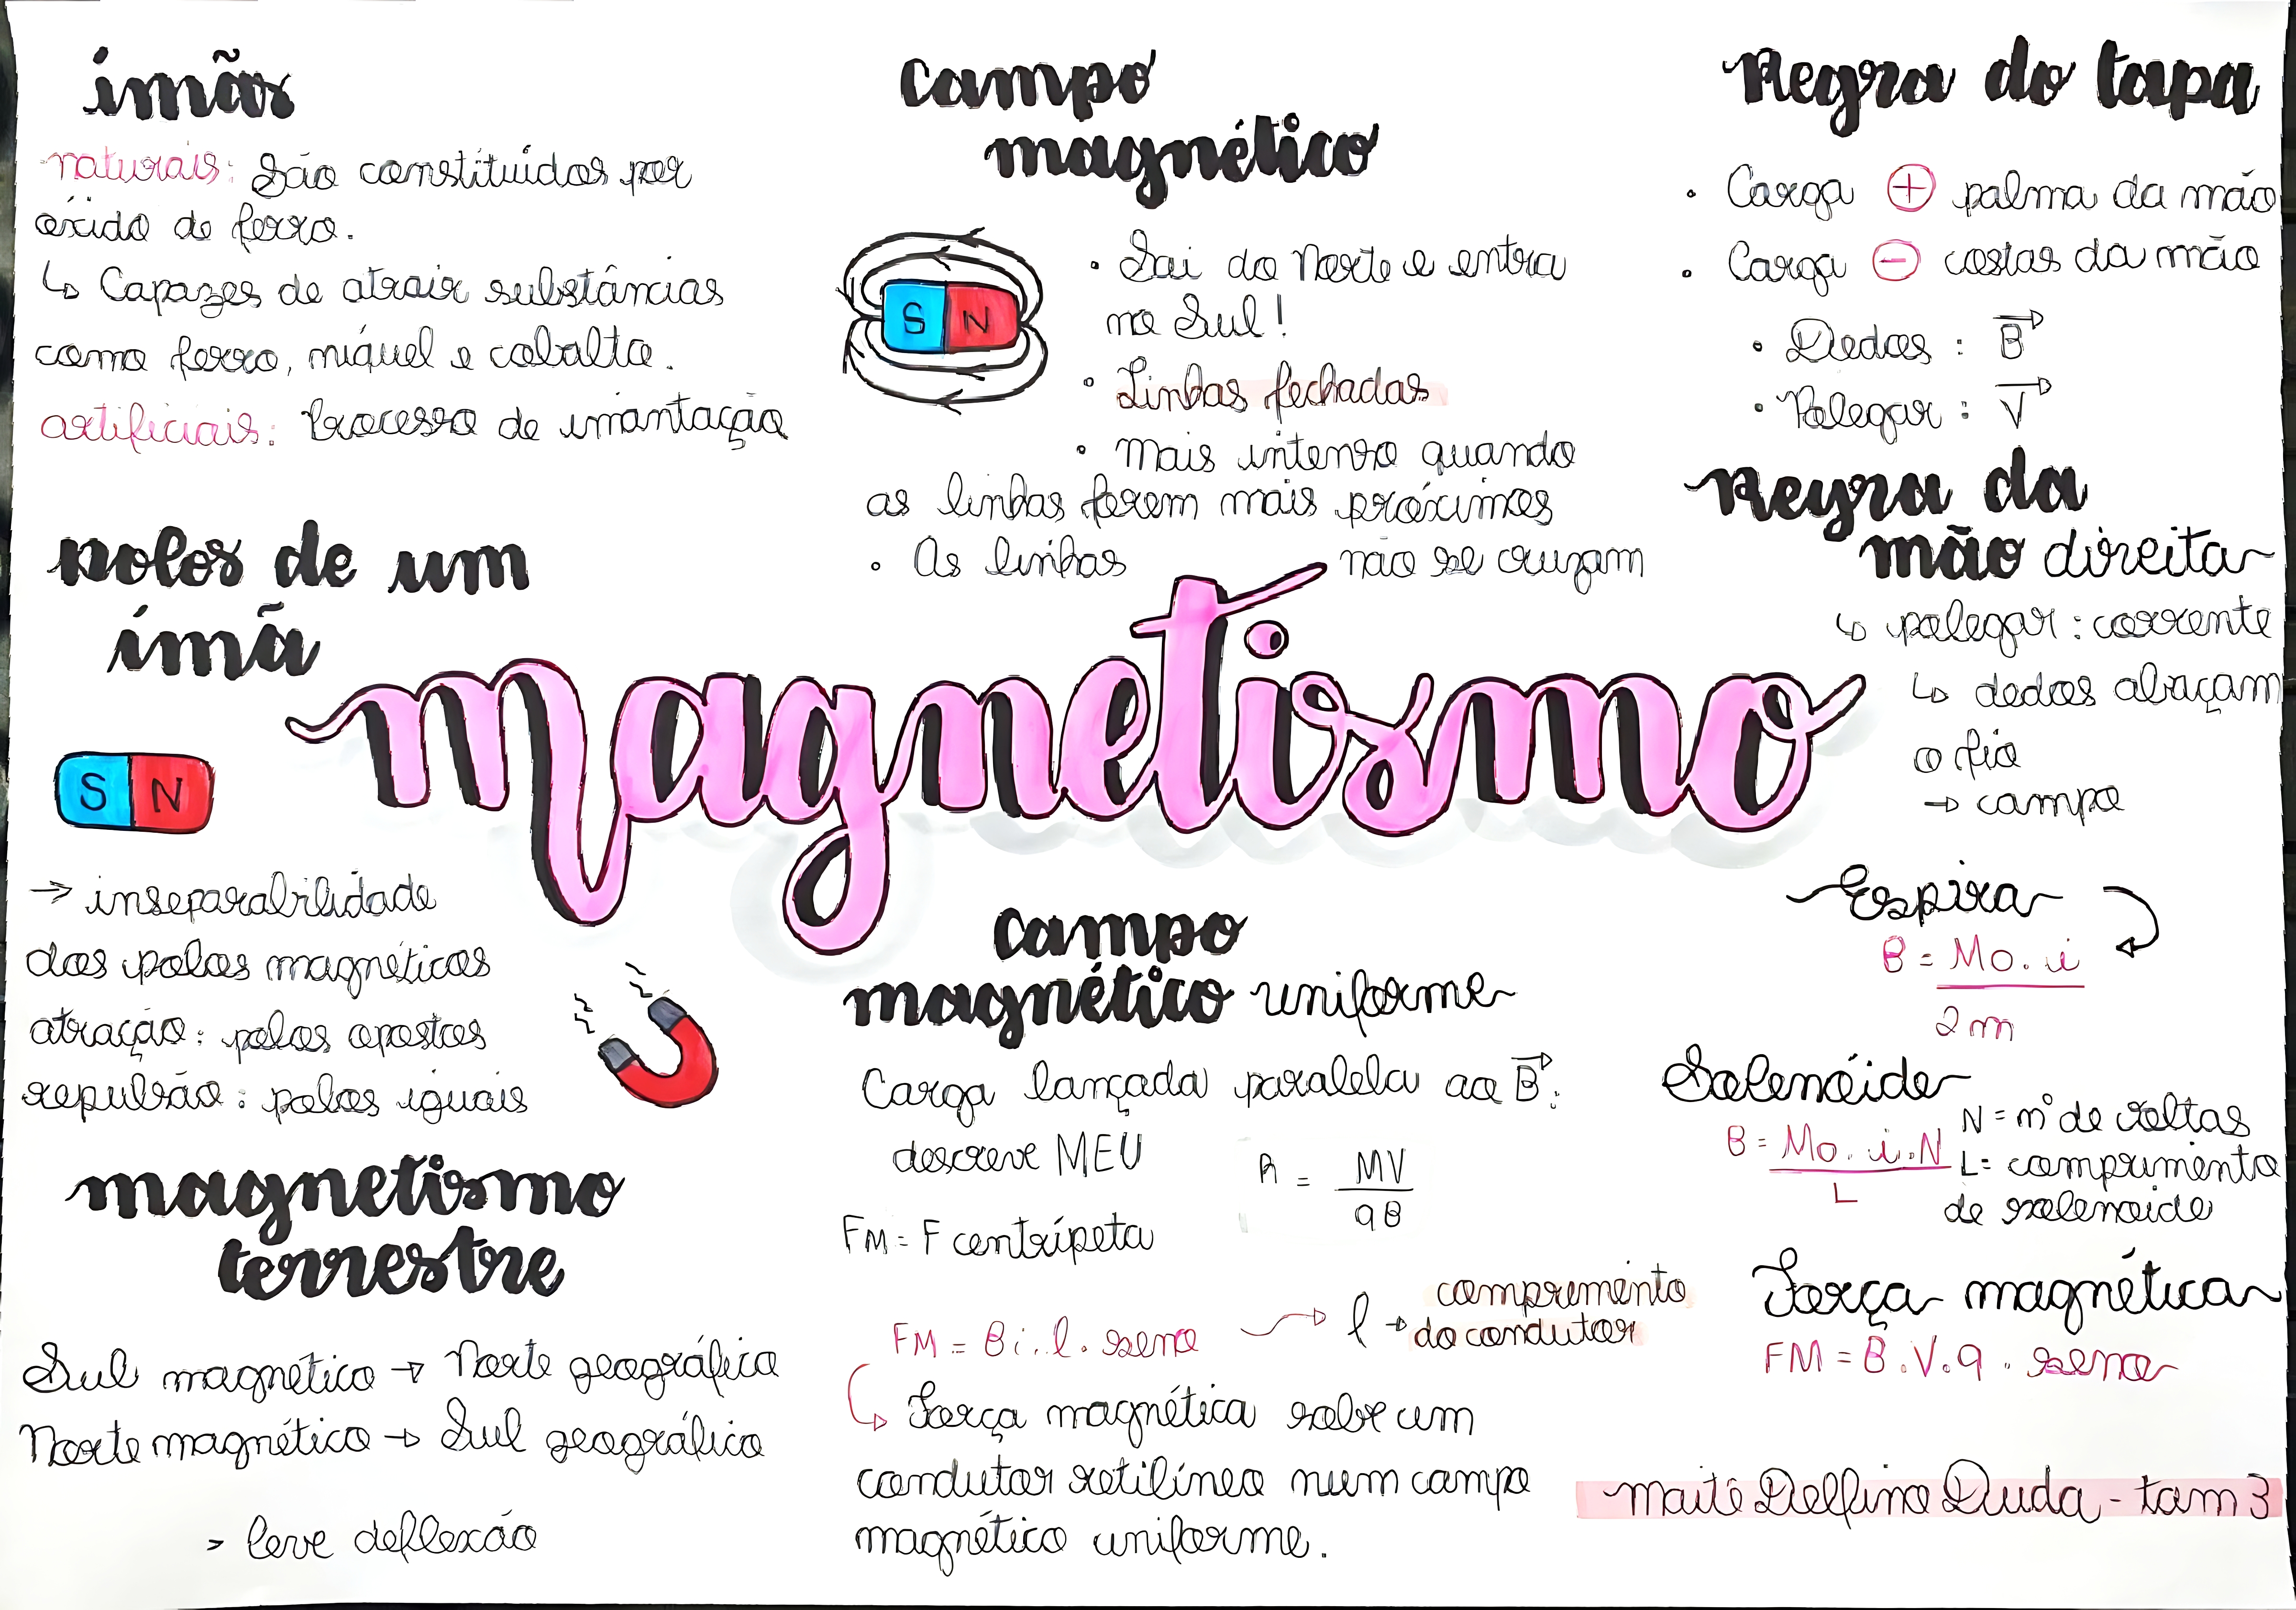 imãs
naturais: São constituídos por
óxido de ferro.
↳ Capazes de atrair substâncias
como ferro, níquel e cobalto.
artificiais: Processo de imantação
Polos de um
imã
S N
→ inseparabilidade
dos polos magnéticos
atração: polos opostos
repulsão: polos iguais
magnetismo
terrestre
Sul magnético → Norte geográfico
Norte magnético → Sul geográfico
> leve deflexão
Campo
magnético
S N
• Sai do Norte e entra
no Sul!
• Linhas fechadas
• Mais intenso quando
as linhas forem mais próximas
• As linhas não se cruzam
magnetismo
campo
magnético uniforme
Carga lançada paralela ao B⃗:
descreve MEU
R = MV
qB
FM = F centrípeta
FM = B i. l. seno → l → comprimento
do condutor
↳ Força magnética sobre um
condutor retilíneo num campo
magnético uniforme.
Regra do tapa
• Carga ⊕ palma da mão
• Carga ⊖ costas da mão
• Dedos: B⃗
• Polegar: V⃗
Regra da
mão direita
↳ polegar: corrente
↳ dedos abraçam
o fio
→ campo
Espira
B = Mo. i
2 m
Solenóide
B = Mo. i. N
L
N = nº de voltas
L = comprimento
de solenoide
Força magnética
FM = B.V.q. seno
Maitê Delfino Duda - tam 3